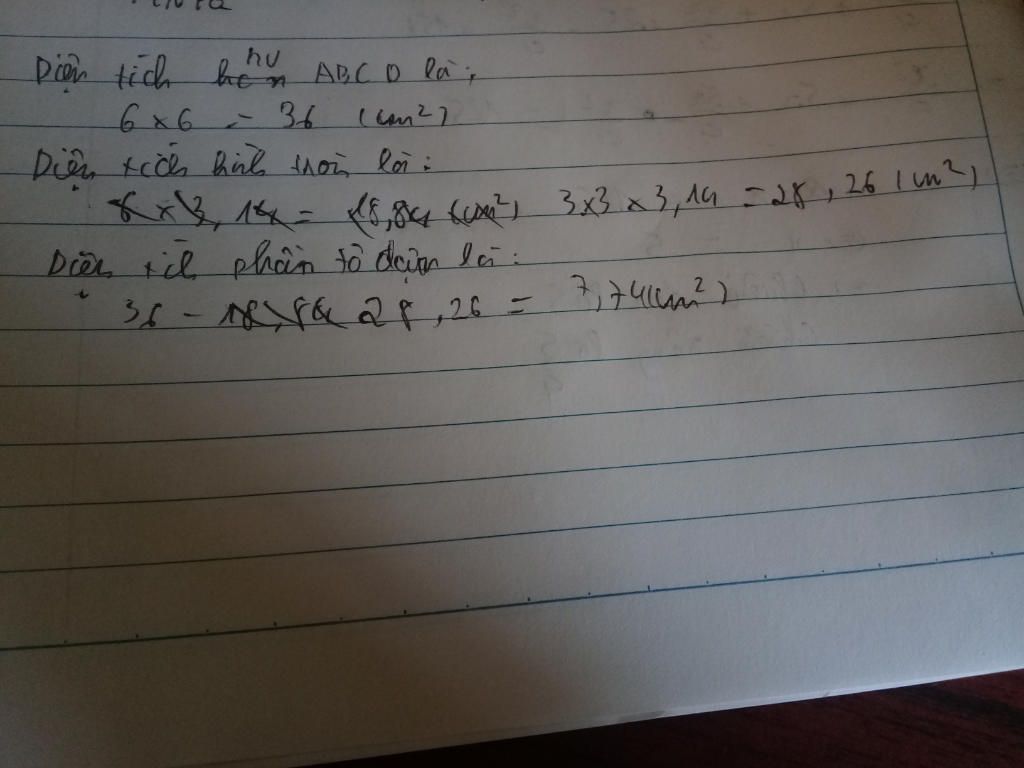 Diện tích hv ABCD là:
6 x 6 = 36 (cm²)
Diện tích hình tròn là:
6 x 3,14 = 18,84 (cm²) 3x3 x 3,14 = 28,26 (cm²)
Diện tích phần tô đậm là:
36 - 18,84 28,26 = 7,74 (cm²)